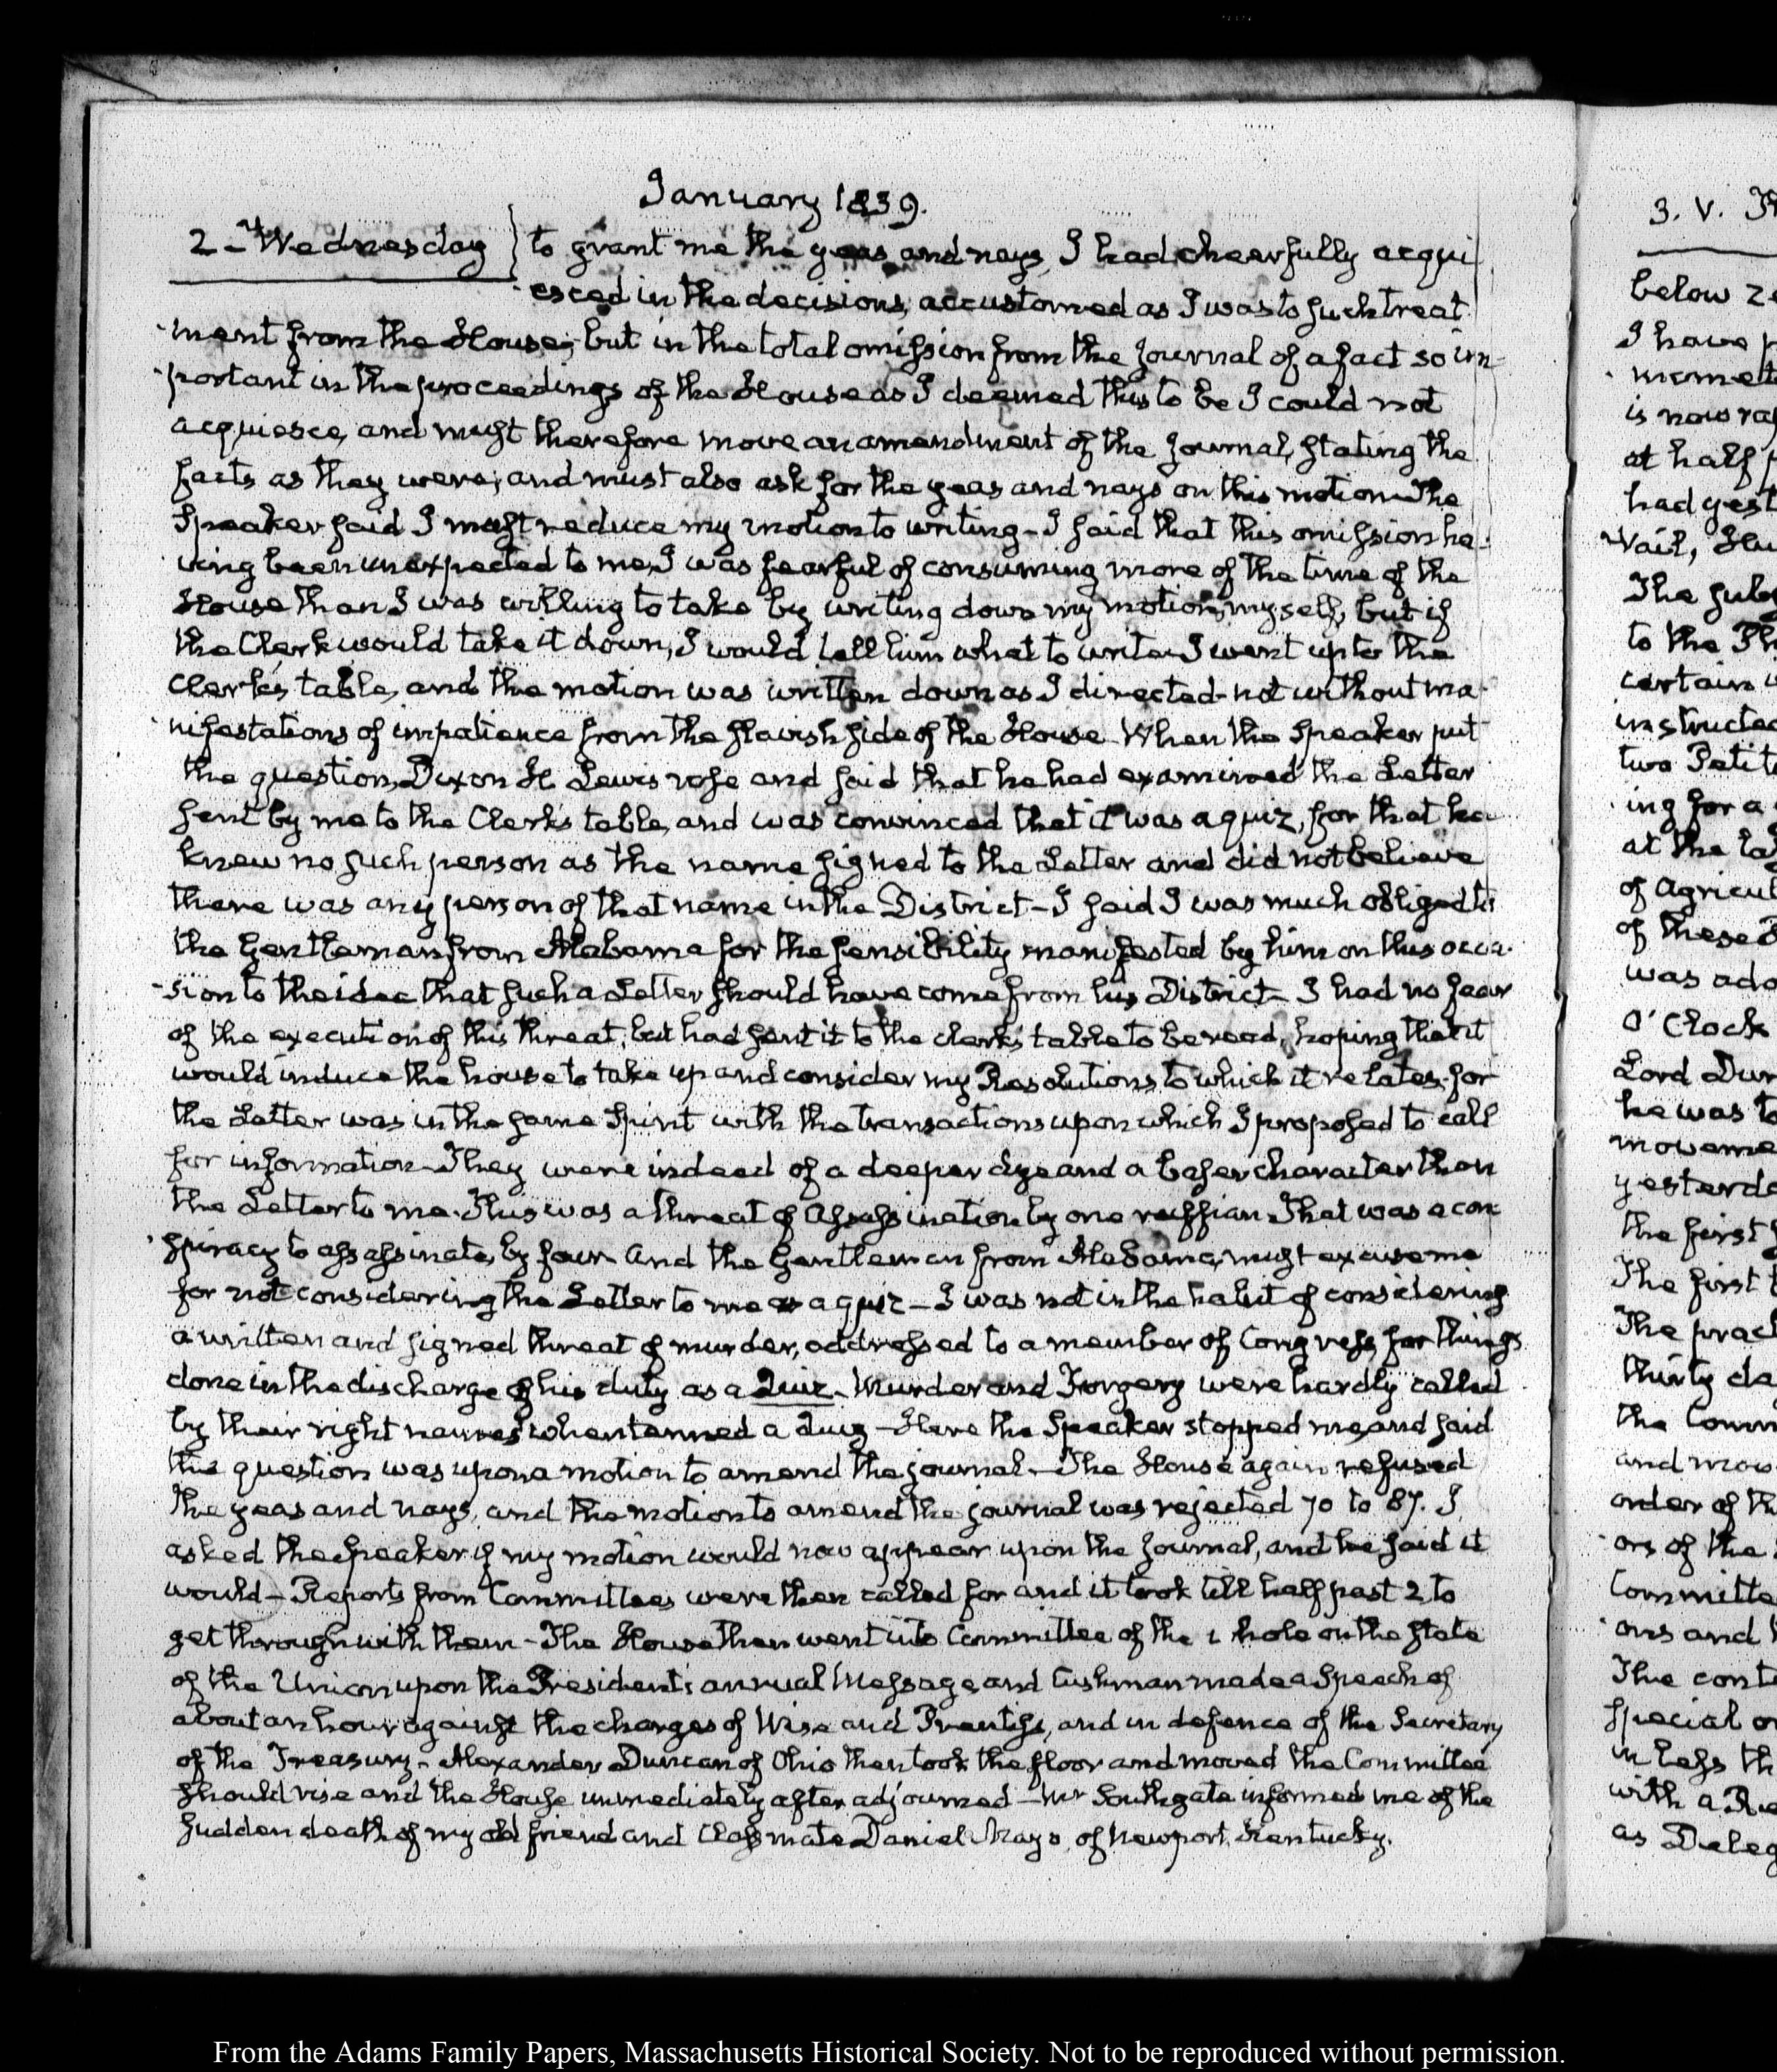 January 1839.
2. Wednesday } to grant me the yeas and nays, I had cheerfully acqui
esced in the decisions, accustomed as I was to such treat
ment from the House; but in the total omission from the journal of a fact so im-
portant in the proceedings of the House as I deemed this to be I could not
acquiesce, and must therefore move an amendment of the journal, stating the
facts as they were; and must also ask for the yeas and nays on this motion. The
Speaker said I must reduce my motion to writing – I said that this omission ha-
ving been unexpected to me, I was fearful of consuming more of the time of the
House than I was willing to take by writing down my motion, myself, but if
the Clerk would take it down, I would tell him what to write. I went up to the
Clerk's table, and the motion was written down as I directed – not without ma-
nifestations of impatience from the slavish side of the House. When the Speaker put
the question, Dixon H Lewis rose and said that he had examined the Letter
sent by me to the Clerk's table, and was convinced that it was a quiz, for that he
knew no such person as the name signed to the Letter and did not believe
there was any person of that name in the District – I said I was much obliged to
the Gentleman from Alabama for the sensibility manifested by him on this occa-
sion to the idea that such a Letter should have come from his District – I had no fear
of the execution of this threat, but had sent it to the clerk's table to be read, hoping that it
would induce the house to take up and consider my Resolutions, to which it relates, for
the Letter was in the same Spirit with the transactions upon which I proposed to call
for information. They were indeed of a deeper dye and a baser character than
the Letter to me. This was a threat of Assassination by one ruffian. That was a con
spiracy to assassinate, by four. And the Gentleman from Alabama, must excuse me
for not considering the Letter to me as a quiz – I was not in the habit of considering
a written and signed threat of murder, addressed to a member of Congress, for things
done in the discharge of his duty as a Quiz – Murder and Forgery were hardly called
by their right names when termed a Quiz – Here the Speaker stopped me, and said
the question was upon a motion to amend the journal – The House again refused
the yeas and nays, and the motion to amend the journal was rejected 70 to 87. I
asked the Speaker if my motion would now appear upon the journal, and he said it
would – Reports from Committees were then called for and it took till half past 2 to
get through with them – The House then went into Committee of the whole on the state
of the Union upon the President's annual Message, and Cushman made a Speech of
about an hour against the charges of Wise and Prentiss, and in defence of the Secretary
of the Treasury – Alexander Duncan of Ohio then took the floor and moved the Committee
should rise and the House immediately after adjourned – Mr Southgate informed me of the
sudden death of my old friend and Classmate Daniel Mayo, of Newport, Kentucky.
3. V.
below
I have
is now
at half
had
Vail,
The
to the
certain
instructed
two
ing for a
at the
of
of these
was
O'Clock
Lord
he was to
yesterda
the first
The first
The
thirty
the
and
order of
ors of the
Committe
ons and
The
special
in less
with a
as
From the Adams Family Papers, Massachusetts Historical Society. Not to be reproduced without permission.